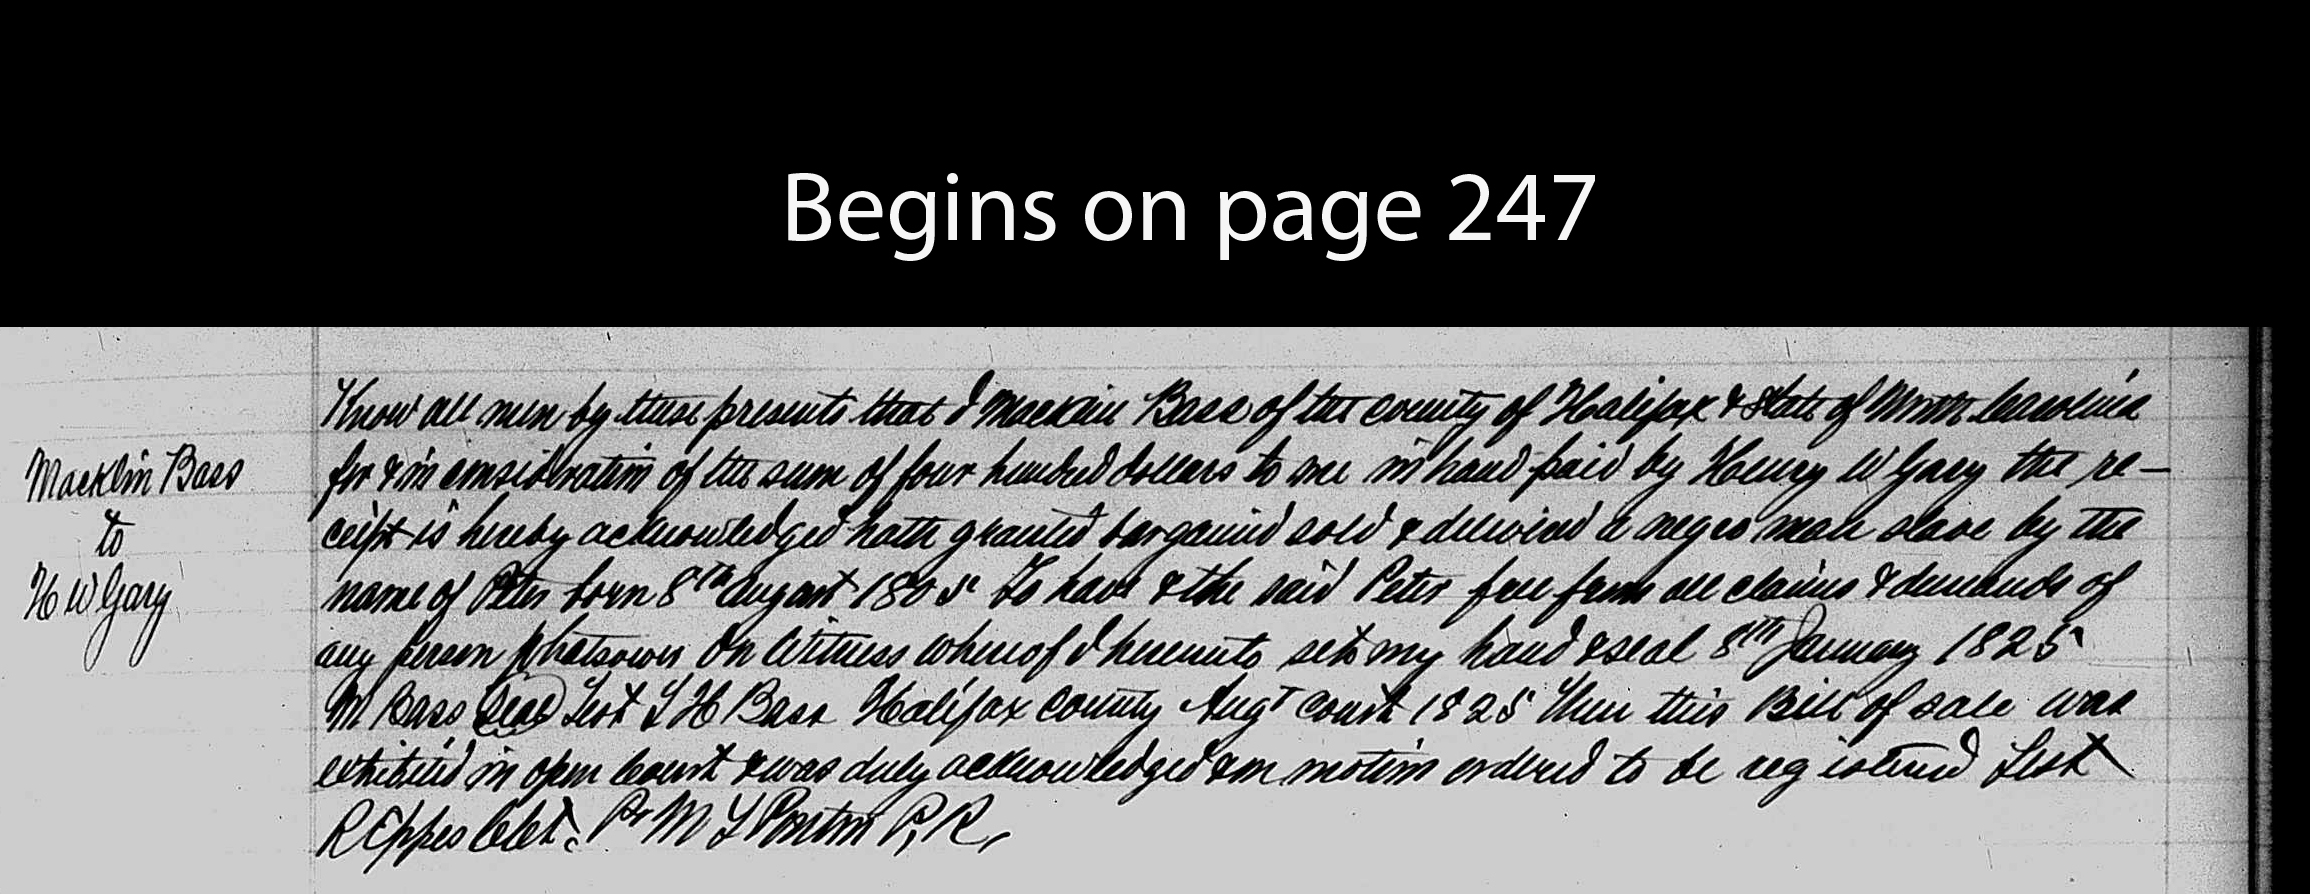 Begins on page 247
Know all men by these presents that I Macklin Bass of the county of Halifax & State of North Carolina
Macklin Bass
for & in consideration of the sum of four hundred dollars to me in hand paid by Henry W Gary the re-
to
ceipt is hereby acknowledged hath granted bargained sold & delivered a negro man slave by the
H W Gary
name of Peter born 8th August 1805 To have & the said Peter free from all claims & demands of
any person whatsoever In Witness whereof I hereunto set my hand & seal 8th January 1825
M Bass Seal Test H Bass Halifax County Augt Court 1825 Then this Bill of sale was
exhibited in open Court & was duly acknowledged & on motion ordered to be registered Test
R Eppes Clk. Pr M Ponton P, R,